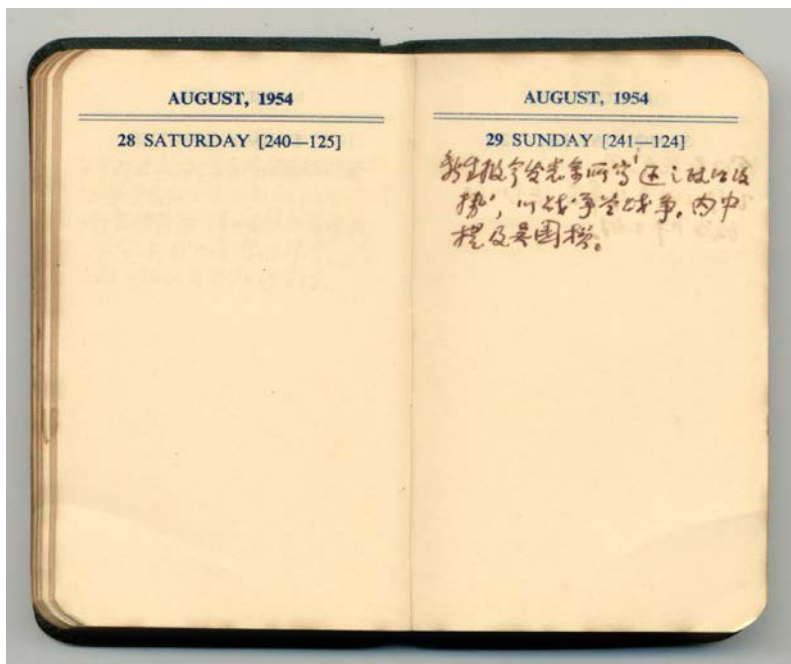 AUGUST, 1954
28 SATURDAY [240—125]
AUGUST, 1954
29 SUNDAY [241—124]
新生报今
势', 以战争
战争。内中
提及吴国桢。